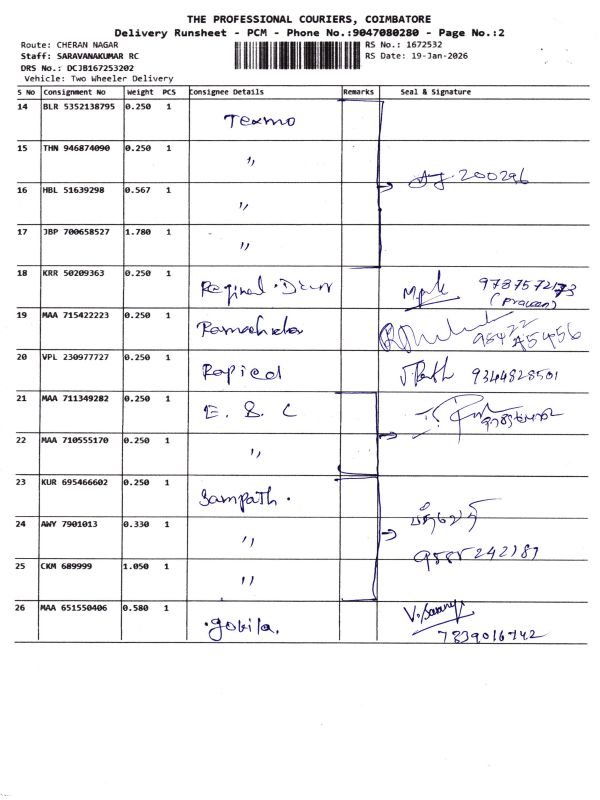 THE PROFESSIONAL COURIERS, COIMBATORE
Delivery Runsheet - PCM - Phone No.:9047080280 - Page No.:2
Route: CHERAN NAGAR RS No.: 1672532
Staff: SARAVANAKUMAR RC RS Date: 19-Jan-2026
DRS No.: DCJB167253202
Vehicle: Two Wheeler Delivery
S No Consignment No Weight PCS Consignee Details Remarks Seal & Signature
14 BLR 5352138795 0.250 1 Texmo
15 THN 946874090 0.250 1 ,,
16 HBL 51639298 0.567 1 ,,
200296
17 JBP 700658527 1.780 1 ,,
18 KRR 50209363 0.250 1
(Praveen)
19 MAA 715422223 0.250 1
20 VPL 230977727 0.250 1 Rapied 9344828501
21 MAA 711349282 0.250 1 E. S. C
22 MAA 710555170 0.250 1 ,,
23 KUR 695466602 0.250 1 Sampath.
24 AWY 7901013 0.330 1 ,,
25 CKM 689999 1.050 1 ,,
26 MAA 651550406 0.580 1
7339016742